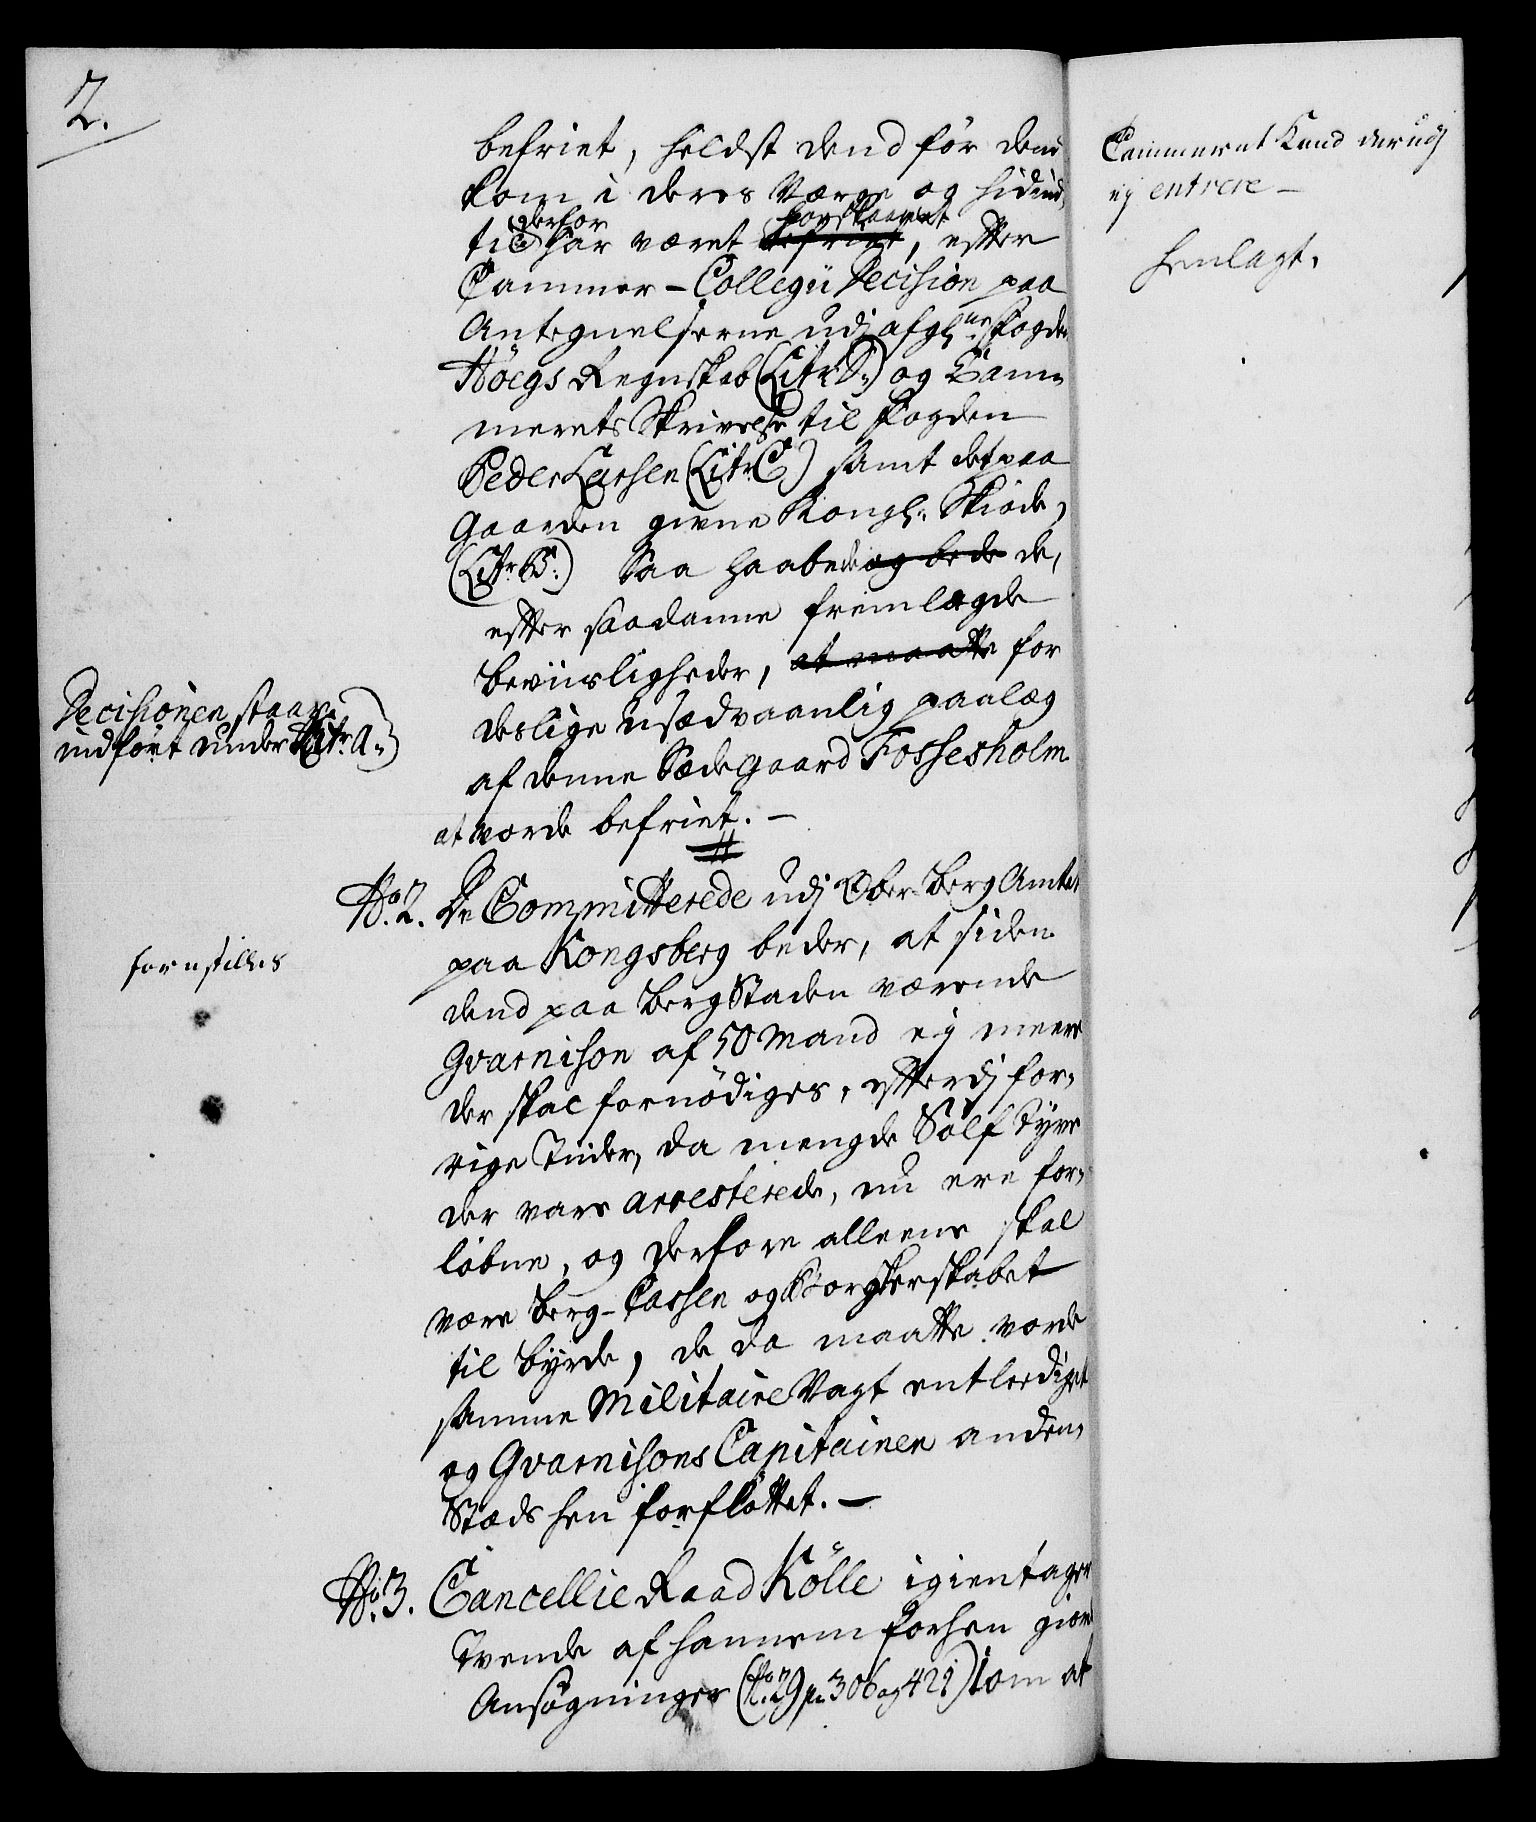 2.
befriet, heldst dend för dend
kom i deres Værge og hidind,,
til derfor har været befriet forskaanet, efter
Cammer-Collegii Decision paa
Antegnelserne udj afg: Fogden
Höegs Regnskab (Litr. D:) og Cam-
merets Skrivelse til Fogden
Peder Larsen (Litr. C) samt det paa
Gaarden givne Kongl: Skiöde,
(Litr. B:) Saa haabede og bede de,
efter saadanne fremlagde
beviisligheder, at maatte for
deslige usædvaanlig paalæg
af denne Sædegaard Fossesholm
at vorde befriet. —
Decisionen staar
indfört under Litr. A:)
No. 2. De Committerede udj Ober-Berg Amtet
paa Kongsberg beder, at siden
dend paa bergStaden værende
Gvarnison af 50 Mand ej meere
der skal fornödiges, efterdj for-
rige Tiider, da mengde Sölf Tyve
der vare arresterede, nu ere for-
löbne, og derfore alleene skal
være Berg-Cassen og Borgerskabet
til byrde, de da maatte vorde
samme Militaire Vagt entlediget
og Gvarnisons Capitainen anden-
Stæds hen forflöttet. —
forestilles
No. 3. Cancellie Raad Kölle igientager
Tvende af hannem forhen giorde
Ansögninger (No. 29 p. 306 og 421) om at
Cammeret Kand derudj
ej entrere —
henlagt.